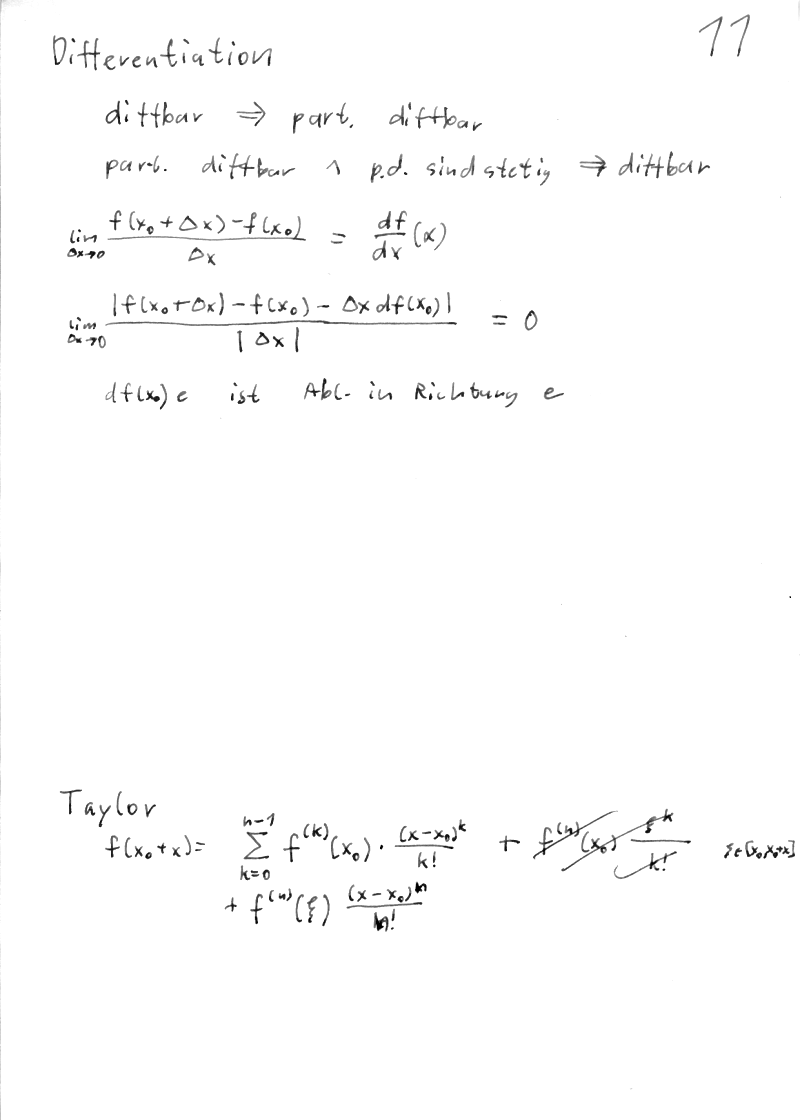 11
Differentiation
diffbar ⇒ part. diffbar
part. diffbar ∧ p.d. sind stetig ⇒ diffbar
lim_{Δx→0} (f(x₀+Δx)-f(x₀))/Δx = df/dx (x)
lim_{Δx→0} |f(x₀+Δx)-f(x₀)-Δx df(x₀)|/|Δx| = 0
df(x₀)e ist Abl. in Richtung e
Taylor
f(x₀+x)= ∑_{k=0}^{n-1} f^{(k)}(x₀) · (x-x₀)^k/k! + f^{(n)}(x₀) ξ^k/k! ξ∈[x₀,x₀+x]
+ f^{(n)}(ξ) (x-x₀)^n/n!